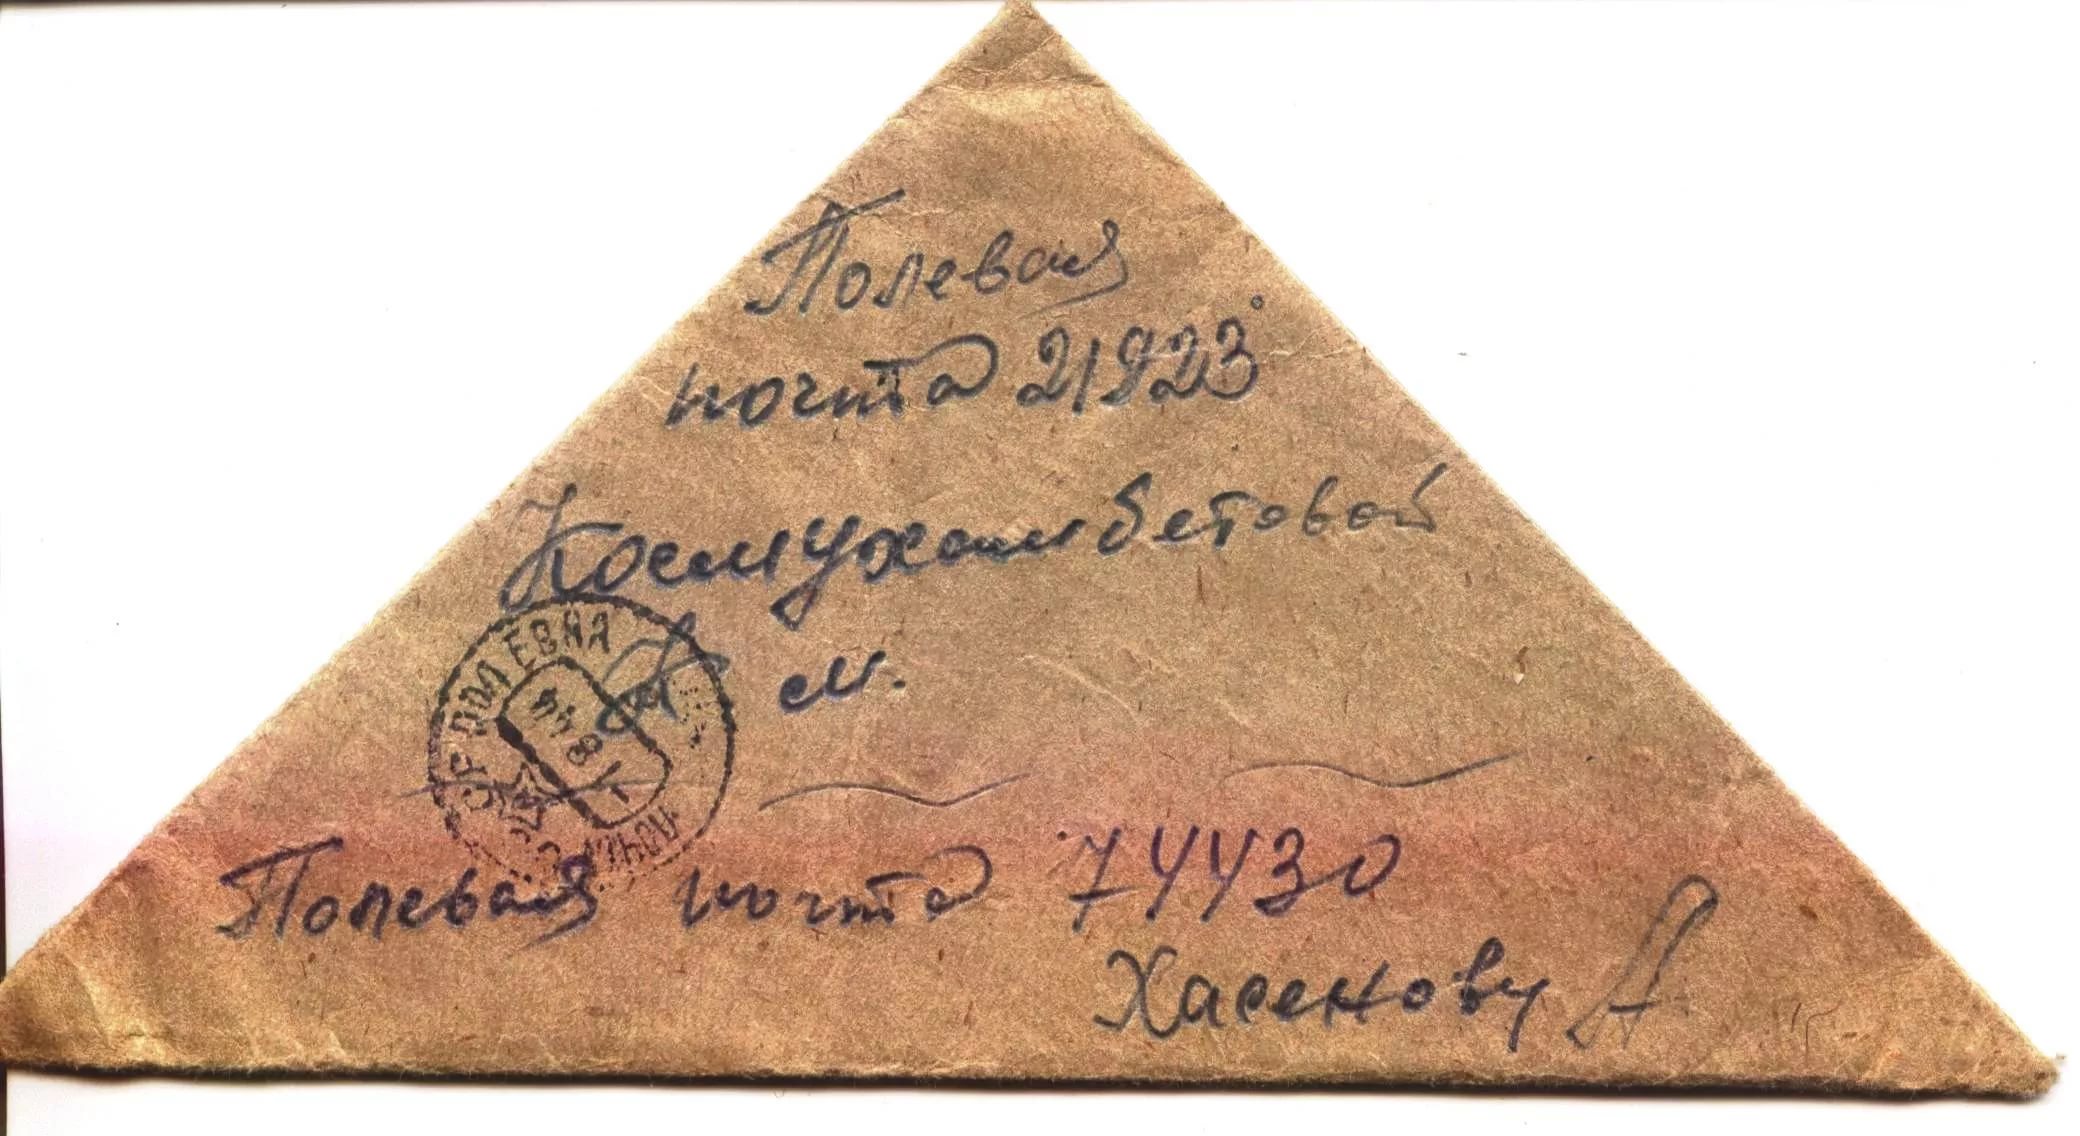 Полевая
почта 21923
Космухамбетовой
м.
ПОЛЕВАЯ ПОЧТА
44
8
1
Полевая почта 74430
Хасенову А